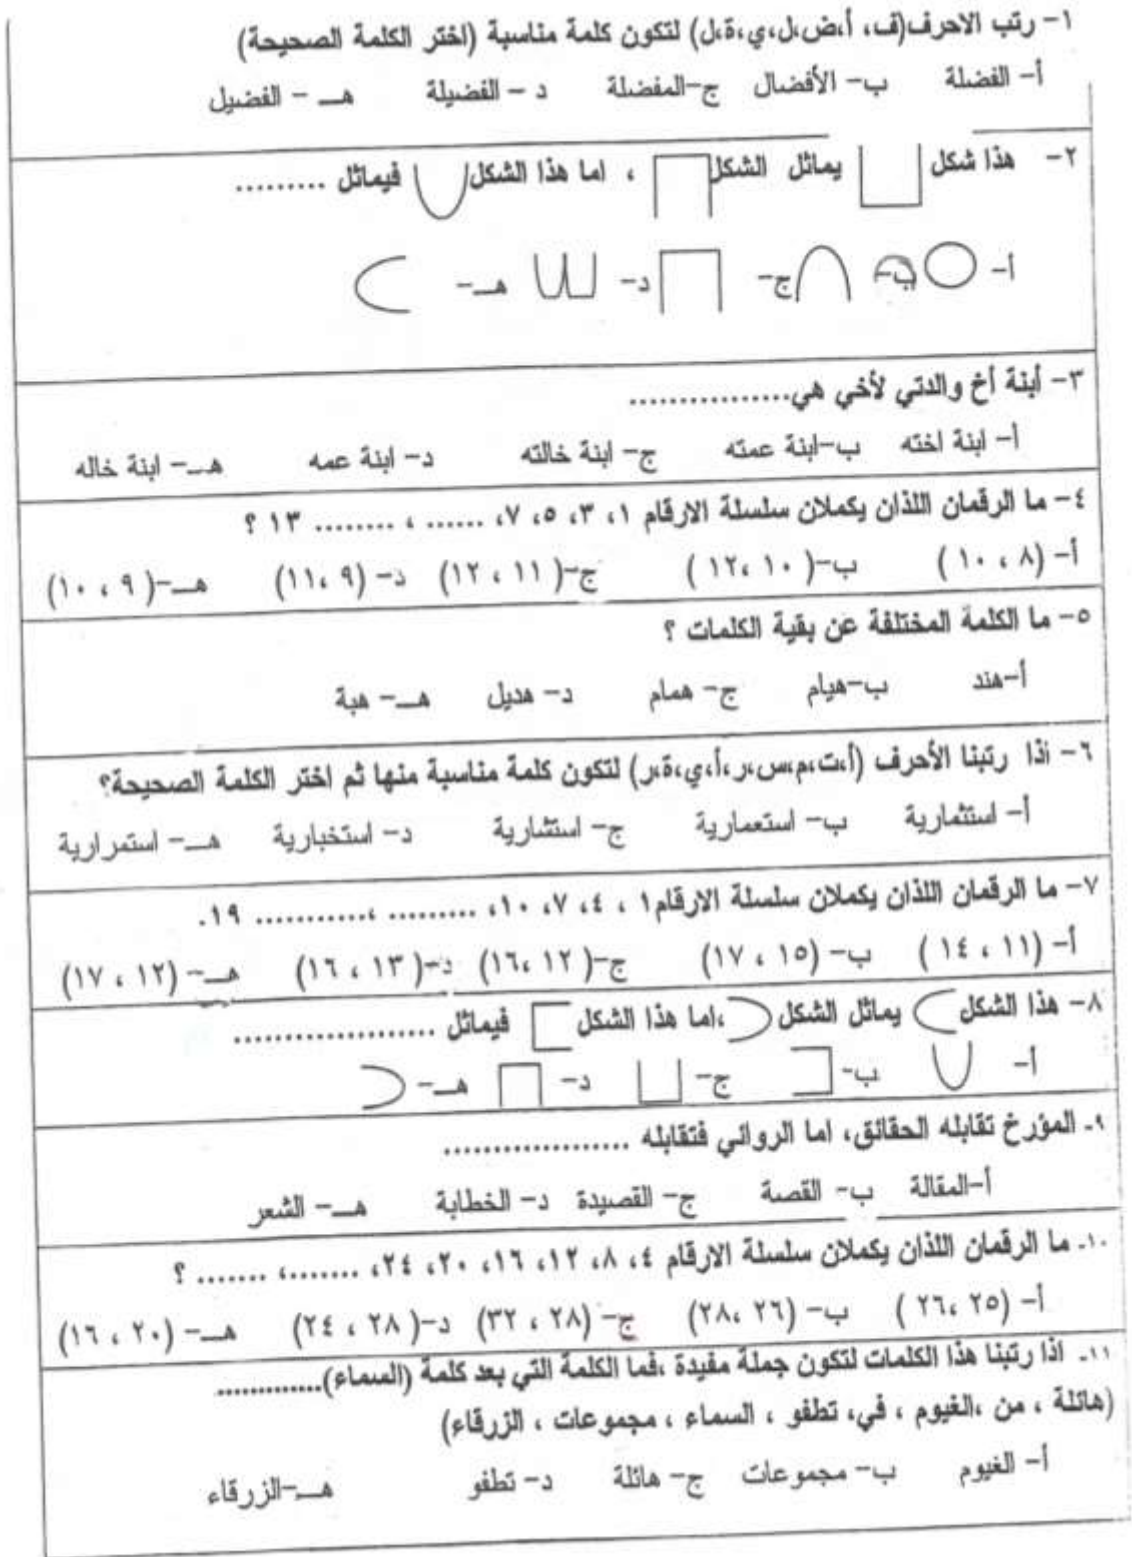 ١- رتب الاحرف(ف، أ،ض،ل،ي،ة،ل) لتكون كلمة مناسبة (اختر الكلمة الصحيحة)
أ- الفضلة ب- الأفضال ج-المفضلة د – الفضيلة هـ – الفضيل
٢- هذا شكل يماثل الشكل ، اما هذا الشكل فيماثل .........
أ- ب- ج- د- هـ-
٣- أبنة أخ والدتي لأخي هي................
أ- ابنة اخته ب-ابنة عمته ج- ابنة خالته د- ابنة عمه هـ- ابنة خاله
٤- ما الرقمان اللذان يكملان سلسلة الارقام ١، ٣، ٥، ٧، ...... ، ........ ١٣ ؟
أ- (٨ ، ١٠ ) ب-( ١٠ ،١٢ ) ج-( ١١ ، ١٢) د- (٩ ،١١) هـ-( ٩ ، ١٠)
٥- ما الكلمة المختلفة عن بقية الكلمات ؟
أ-هند ب-هيام ج- همام د- هديل هـ- هبة
٦- اذا رتبنا الأحرف (أ،ت،م،س،ر،أ،ي،ة،ر) لتكون كلمة مناسبة منها ثم اختر الكلمة الصحيحة؟
أ- استثمارية ب- استعمارية ج- استشارية د- استخبارية هـ- استمرارية
٧- ما الرقمان اللذان يكملان سلسلة الارقام١ ، ٤، ٧، ١٠، ......... ،........... ١٩.
أ- (١١ ، ١٤ ) ب- (١٥ ، ١٧) ج-( ١٢ ،١٦) د-( ١٣ ، ١٦) هـ- (١٢ ، ١٧)
٨- هذا الشكل يماثل الشكل ،اما هذا الشكل فيماثل ....................
أ- ب- ج- د- هـ-
٩- المؤرخ تقابله الحقائق، اما الروائي فتقابله ...................
أ-المقالة ب- القصة ج- القصيدة د- الخطابة هـ- الشعر
١٠- ما الرقمان اللذان يكملان سلسلة الارقام ٤، ٨، ١٢، ١٦، ٢٠، ٢٤، .......، ....... ؟
أ- (٢٥ ،٢٦ ) ب- (٢٦ ،٢٨) ج- (٢٨ ، ٣٢) د-( ٢٨ ، ٢٤) هـ- (٢٠ ، ١٦)
١١- اذا رتبنا هذا الكلمات لتكون جملة مفيدة ،فما الكلمة التي بعد كلمة (السماء).............
(هائلة ، من ،الغيوم ، في، تطفو ، السماء ، مجموعات ، الزرقاء)
أ- الغيوم ب- مجموعات ج- هائلة د- تطفو هـ-الزرقاء